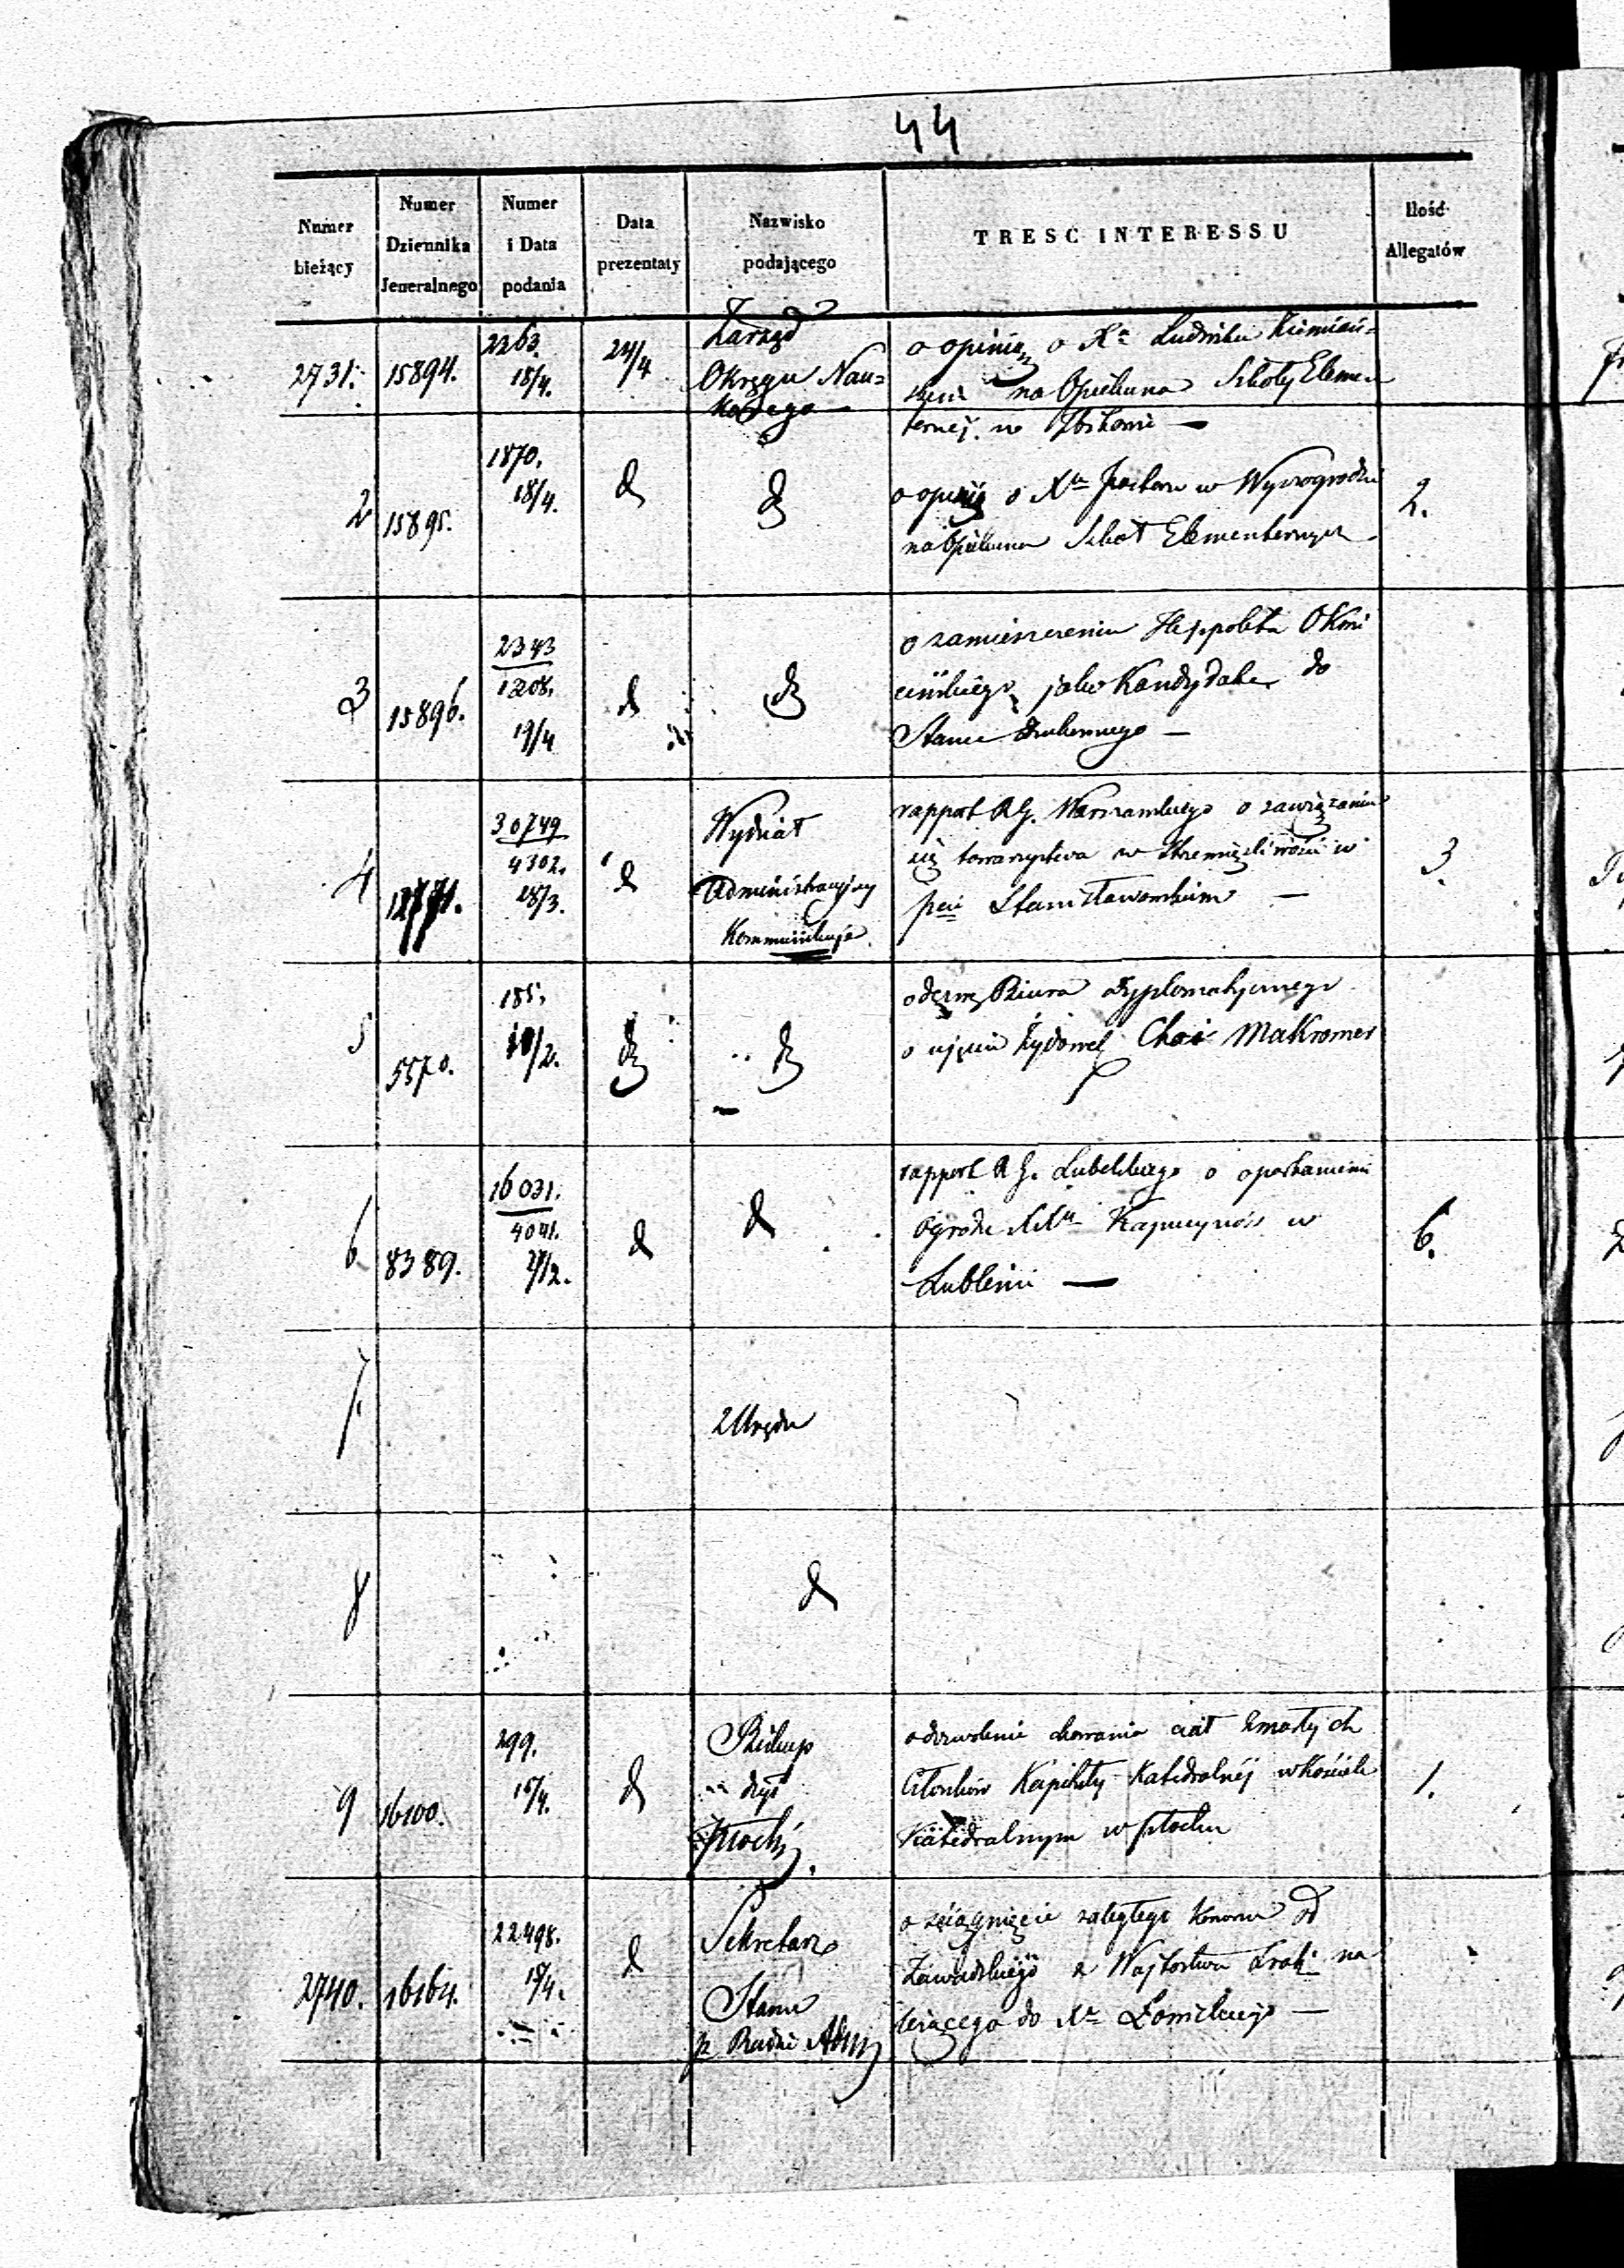 44
Numer bieżący
Numer Dziennika Jeneralnego
Numer i Data podania
Data prezentaty
Nazwisko podającego
TRESC INTERESSU
Ilość Allegatów
2731. 15894. 2263. 18/4. 24/4
Zarząd
Okręgu Nau=
kowego
o opinią o Xu Ludwiku
na Opiekuna Szkoły Elemen
ternej w Zbikowie —
2 15895. 1870. 18/4. d d
o opinią o Xu w Wyszogrodzie
na Opiekuna Szkół Elementarnych
2.
3 15896. 2343 1208. 19/4 d d
o zamieszczeniu Hippolita Okni
cińskiego jako Kandydata do
Stanu —
4 30749 4302. 28/3. d
Wydział
Administracyjny
Kommunikuje
rapport R.G. Warszawskiego o zawiązaniu
się towarzystwa w Strzemięźliwości w
pcie Stanisławowskim —
3.
5 5570. 185. /2. d d
odezwę Biura Dyplomatycznego
o ujęciu Żydówki Chai Makromer
6 8389. 16031. 4041. 27/2. d d
rapport R.G. Lubelskiego o oparkanieniu
Ogrodu XXu Kapucynów w
Lublinie —
6.
7.
z Urzędu
8 d
9 16100. 299. 15/4. d
Biskup
Dyż
Płocki.
o dozwolenie chowania ciał zmarłych
Członków Kapituły Katedralnéj w Kościele
Katedralnym w Płocku
1.
2740. 16164. 22498. 18/4. d
Sekretarz
Stanu
p. Radzie Adm
o ściągnięcie zaległego Kanonu od
Zawadzkiego z Wójtostwa na
leżącego do Xa Łomzkiego —